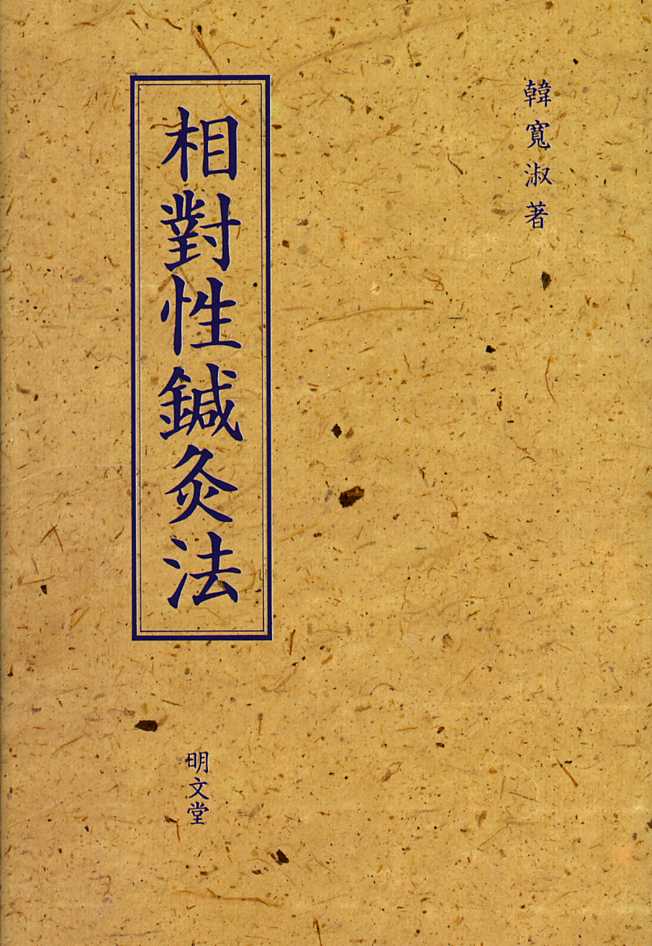 韓寬淑著
相對性鍼灸法
明文堂